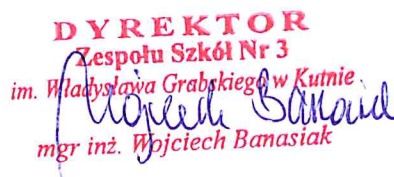 DYREKTOR
Zespołu Szkół Nr 3
im. Władysława Grabskiego w Kutnie
Wojciech Banasiak
mgr inż. Wojciech Banasiak